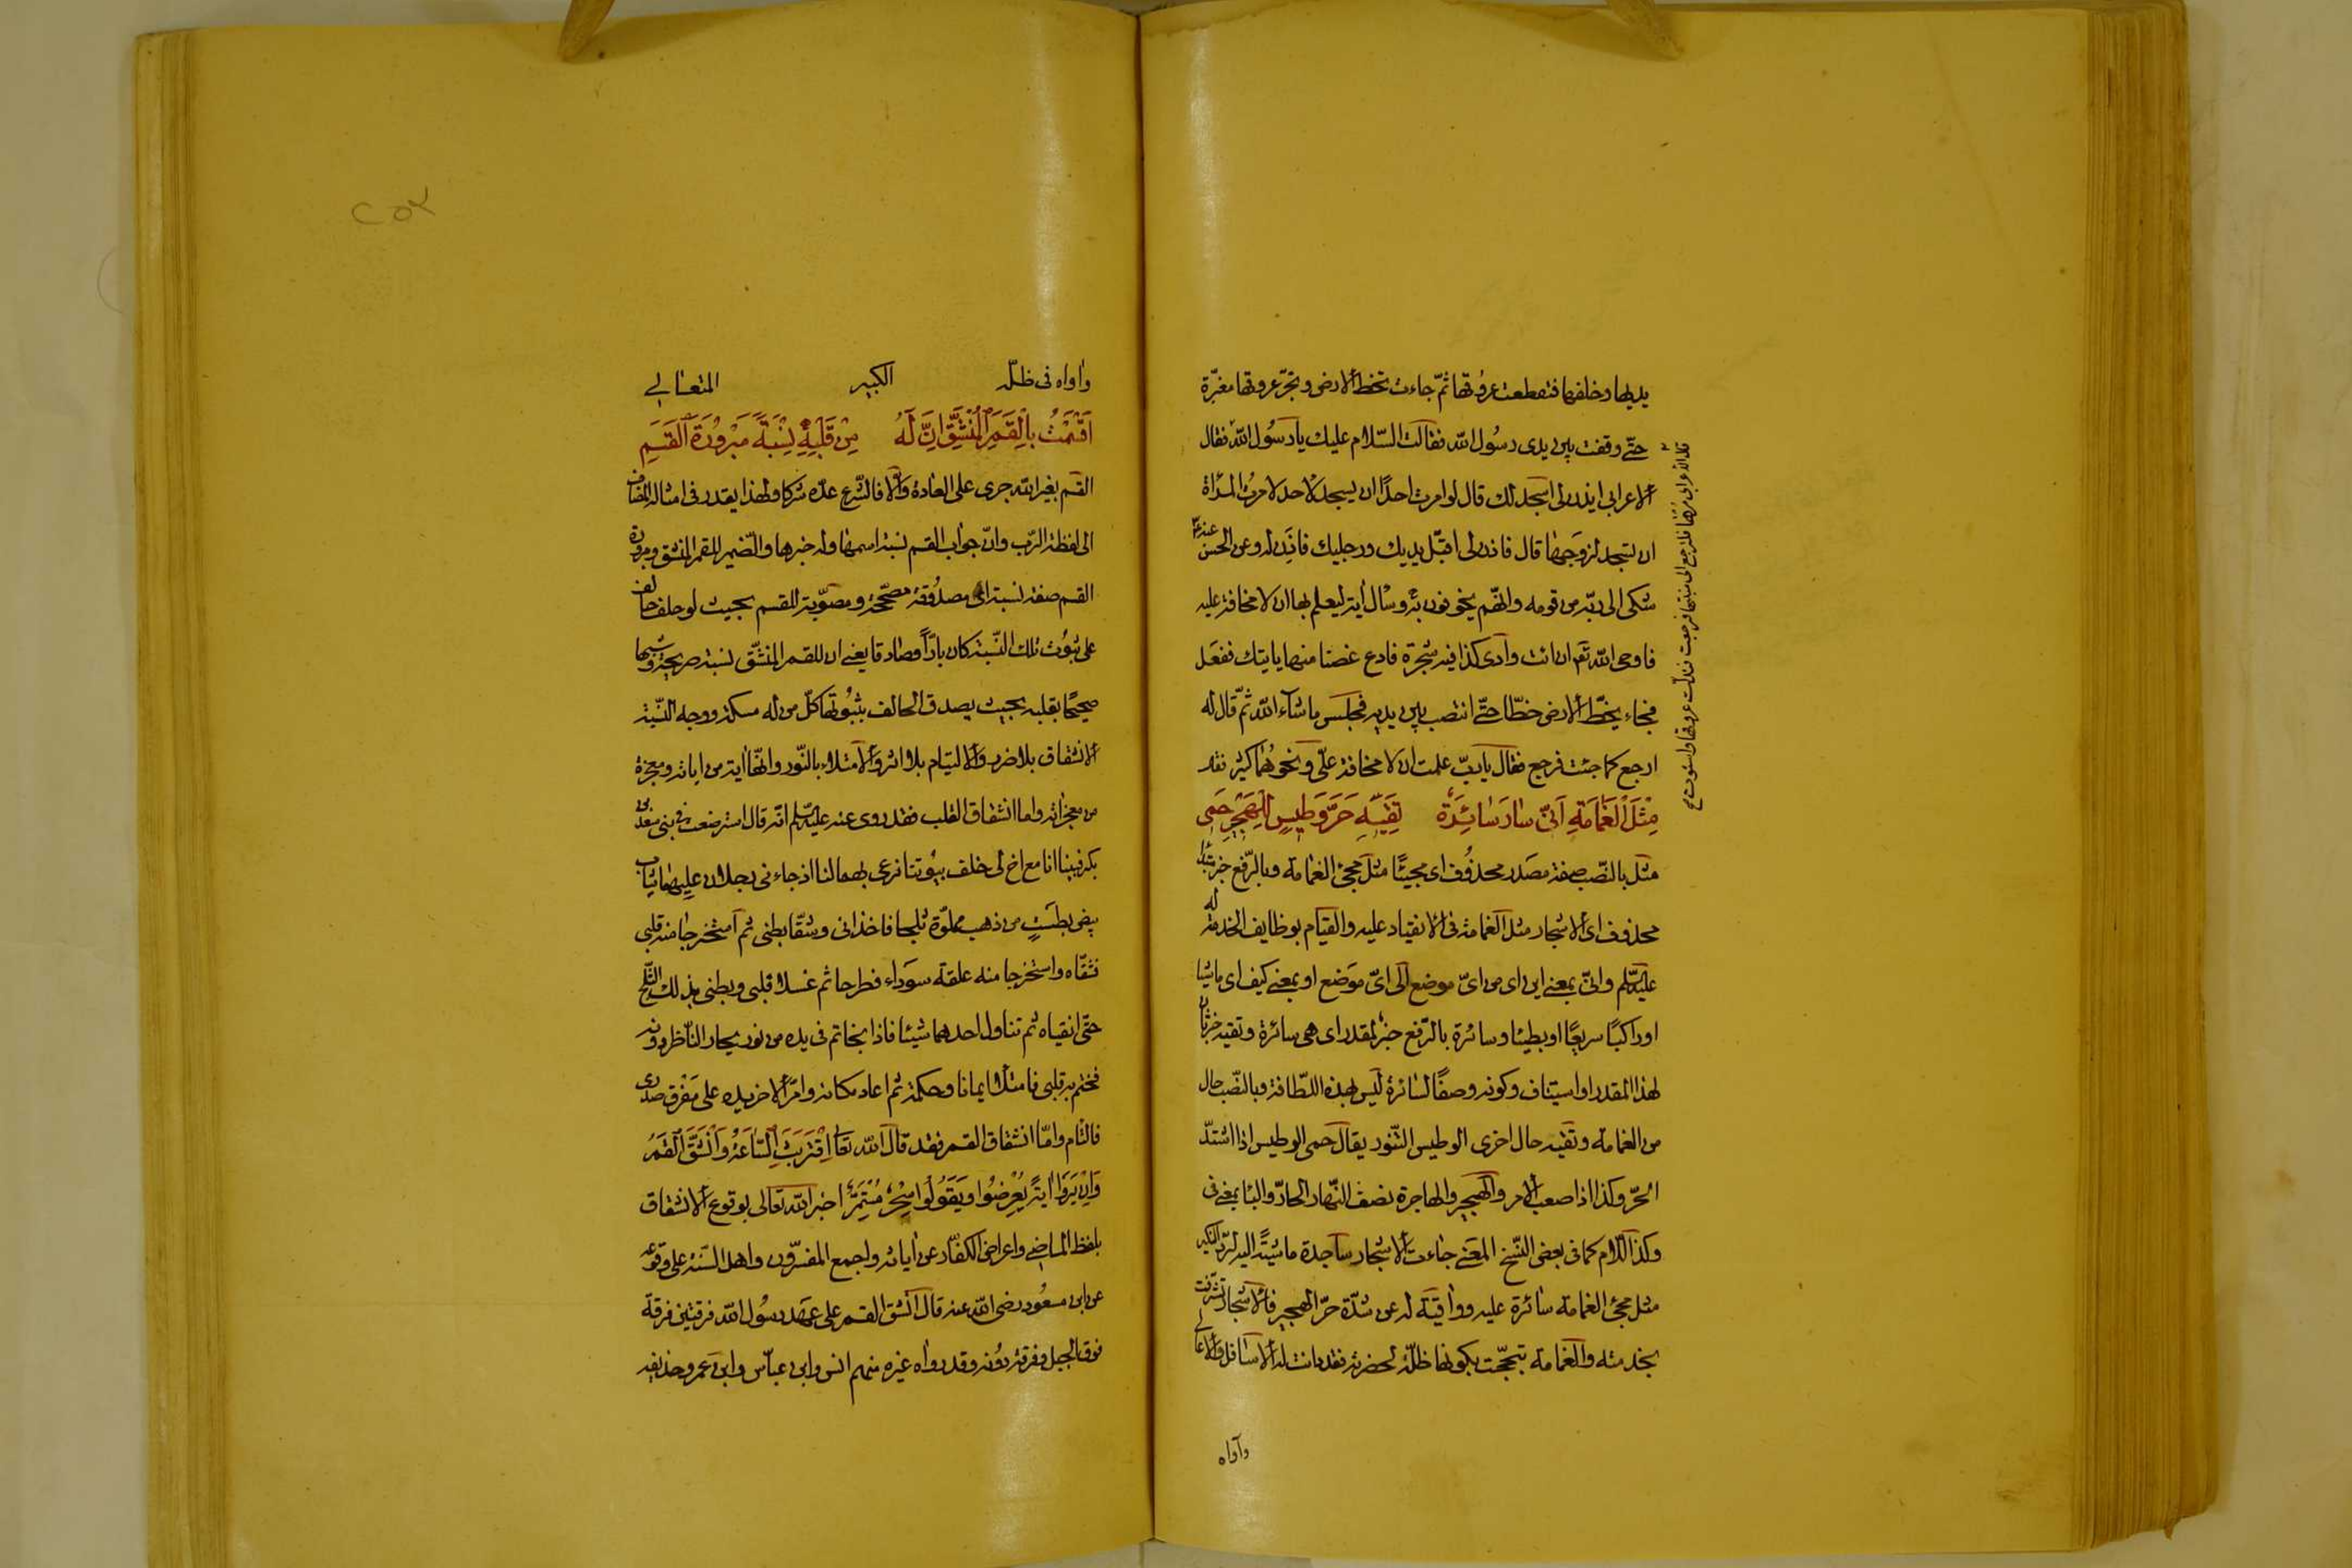 يديها وخلفها فتقطعت عروقها ثمّ جاءت تخط الارض وتجرّ عروقها مغبرّة
حتّى وقفت بين يدى رسُول الله فقالت السّلام عليك يا رسُول الله فقال
الاعرابى ايذن لى اسجد لك قال لو امرت احدًا ان يسجد لاحد لامرتُ المرْاة
ان تسجد لزوجها قال فاذن لى اقبّل يديك ورجليك فاذِن له وعن الحسن
شكى الى ربّه من قومه وانّهم يخوفونه وسْال اٰية ليعلم بها ان لا مخافة عليه
فاوحى الله تعم ان ائت وادى كذا فيه شجرة فادع غصنا منها يايتك ففعَل
فجاء يخطّ الارض خطّا حتّى انتصب بين يديه فجلس ما شآء الله ثمّ قال له
ارجع كما جئت فرجع فقال يا ربّ علمت ان لا مخافة علىّ ونحوهُما كثير نقلا
مِثْلَ الْغَمَامَةِ اَنّٰى سَارَ سَائِرَةٌ تَقِيْهِ حَرَّ وَطِيْسٍ لِلْهَجِيْرِ حَمِى
مثل بالنّصب صفة مصدر محذُوف اى مجيئًا مثل مجئ الغمامة وبالرّفع خبر مبتدا
محذوف اى الاشجار مثل الغمامة فى الانقياد عليه والقيام بوظايف الخدمة له
عليه السلم وانّى بمعنى اين اى من اىّ موضع الى اىّ موَضع او بمعنى كيف اى ماشيا
او راكبًا سريعًا او بطيئا وسائرة بالرّفع خبر لمقدر اى هى سائرة وتقيه خبر ثان
لهذا المقدر او استيناف وكونه وصفًا لسائرة ليس بهذه اللطافة وبالنّصب حال
من الغمامة وتقيه حال اخرى الوطيس التّنور يقال حمى الوطيس اذا اشتدّ
الحرّ وكذا اذا صعب الامر والهجير والهاجرة نصف النّهار الحارّ والبا بمعنى فى
وكذا اللام كما فى بعض النّسخ المعنى جاءت الاشجار ساجدة ماشيَة اليه لربّه الكبير
مثل مجئ الغمامة سائرة عليه وواقيَة له عن شدّة حرّ الهجير فالاشجار تشرفت
بخدمته والغمامة تبجّحت بكونها ظلّة لحضرته فقد دانت له الاسافل والاعالى
وآواه
واٰواه فى ظلّه الكبير المتعالى
اَقْسَمْتُ بِالْقَمَرِ الْمُنْشَقِّ اِنَّ لَهُ مِنْ قَلْبِهِ نِسْبَةً مَبْرُوْرَةَ الْقَسَمِ
القسم بغير الله جرى على العادة والّا فالشّرع عدّه شركا ولهذا يقدر فى امثاله المضاف
الى لفظة الرّب وانّ جواب القسم نسبة اسمها وله خبرها والضّمير للقمر المنشق ومبرورة
القسم صفة نسبة اى مصدُوقة مصحّحة ومصوّبة للقسم بحيث لو حلف حالف
على ثبُوت تلك النّسبة كان بارًّا وصادقا يعنى ان للقمر المنشقّ نسبة صريحة وشبها
صحيحًا بقلبه بحيث يصدق الحالف بثبُوتها كلّ من له مسكة ووجه النّسبة
الانشقاق بلا ضرر والالتيام بلا اثر والامتلاء بالنّور وانّها اٰية من اياته ومعجزة
من معجزاته واما انشقاق القلب فقد روى عنه عليه السلم انّه قال استرضعت فى بنى سعد بن
بكر فبينا انا مع اخ لى خلف بيُوتنا نرعى بهما لنا اذ جاءنى رجلان عليهما ثياب
بيض بطست من ذهب مملوّة ثلجا فاخذانى وشقّا بطنى ثم استخرجا منه قلبى
فشقّاه واستخرجا منه علقة سوَداء فطرحا ثم غسلا قلبى وبطنى بذلك الثّلج
حتى انقياه ثم تناول احدهما شيئا فاذا بخاتم فى يده من نور يحار النّاظر دونه
فختم به قلبى فامتلأ ايمانا وحكمة ثم اعاد مكانه وامرّ الاخر يده على مَفرق صدرى
فالتام وامّا انشقاق القمر فقد قال الله تعا اِقْتَرَبَتِ السَّاعَةُ وَانْشَقَّ الْقَمَرُ
وَاِنْ يَرَوْا اٰيَةً يُعْرِضُوا وَيَقُوْلُوا سِحْرٌ مُسْتَمِرٌّ اخبر الله تعالى بوقوع الانشقاق
بلفظ الماضى واعراض الكفّار عن اٰياته واجمع المفسّرون واهل السّنة على وقوعه
عن ابن مسعُود رضى الله عنه قال انشق القمر على عهد رسُول الله فرقتين فرقة
فوق الجبل وفرقة دُونه وقد رواه غيره منهم انس وابن عبّاس وابن عمر وحذيفه